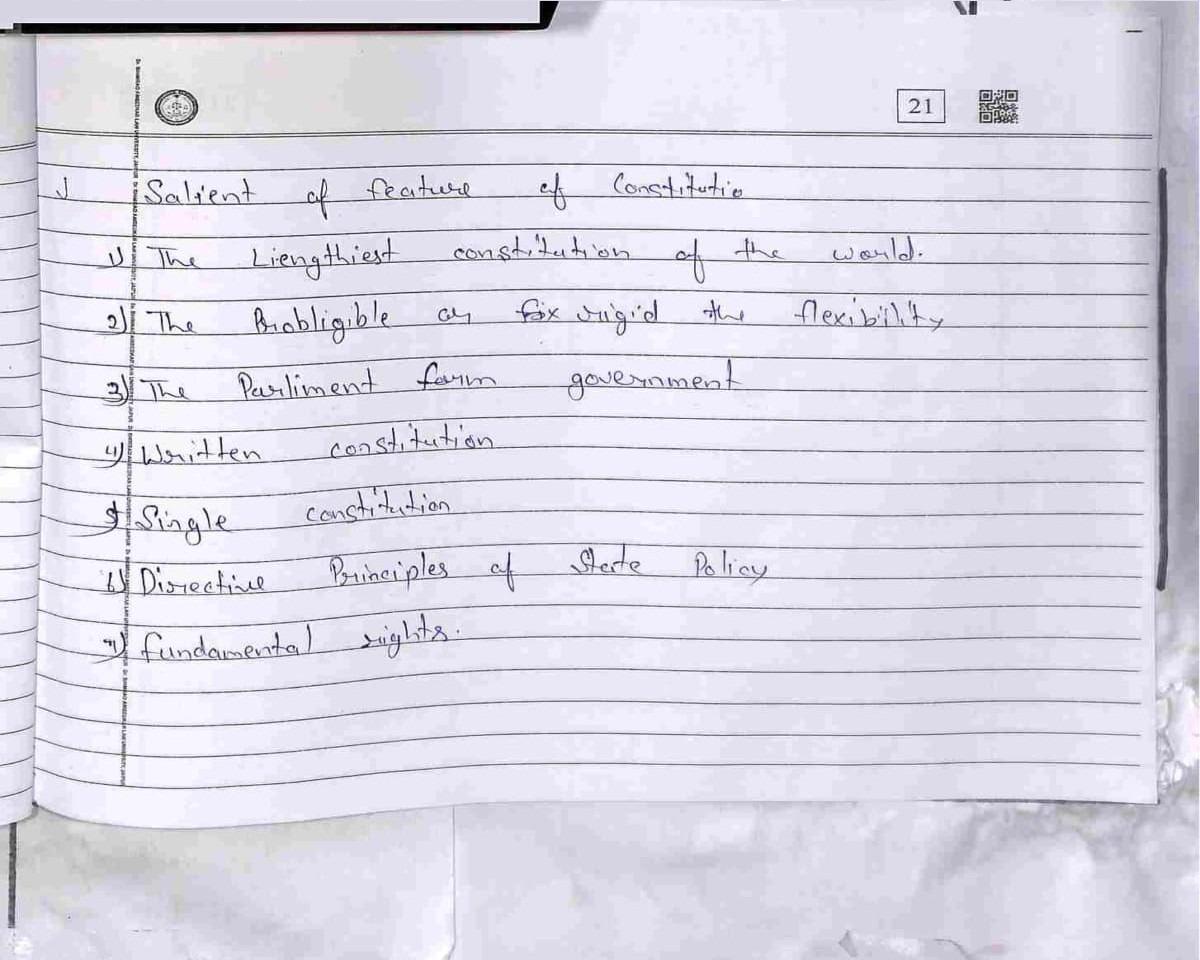 21
Salient of feature of Constitutio
1) The Liengthiest constitution of the world.
2) The Probligible as fix rigid the flexibility
3) The Parliment form government
4) Written constitution
5) Single constitution
6) Directive Principles of State Policy
7) fundamental rights.